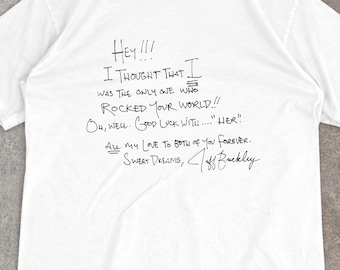 HEY!!!
I THOUGHT THAT I
WAS THE ONLY ONE WHO
ROCKED YOUR WORLD!!
OH, WELL. GOOD LUCK WITH...."HER".
ALL MY LOVE TO BOTH OF YOU FOREVER.
SWEET DREAMS, Jeff Buckley